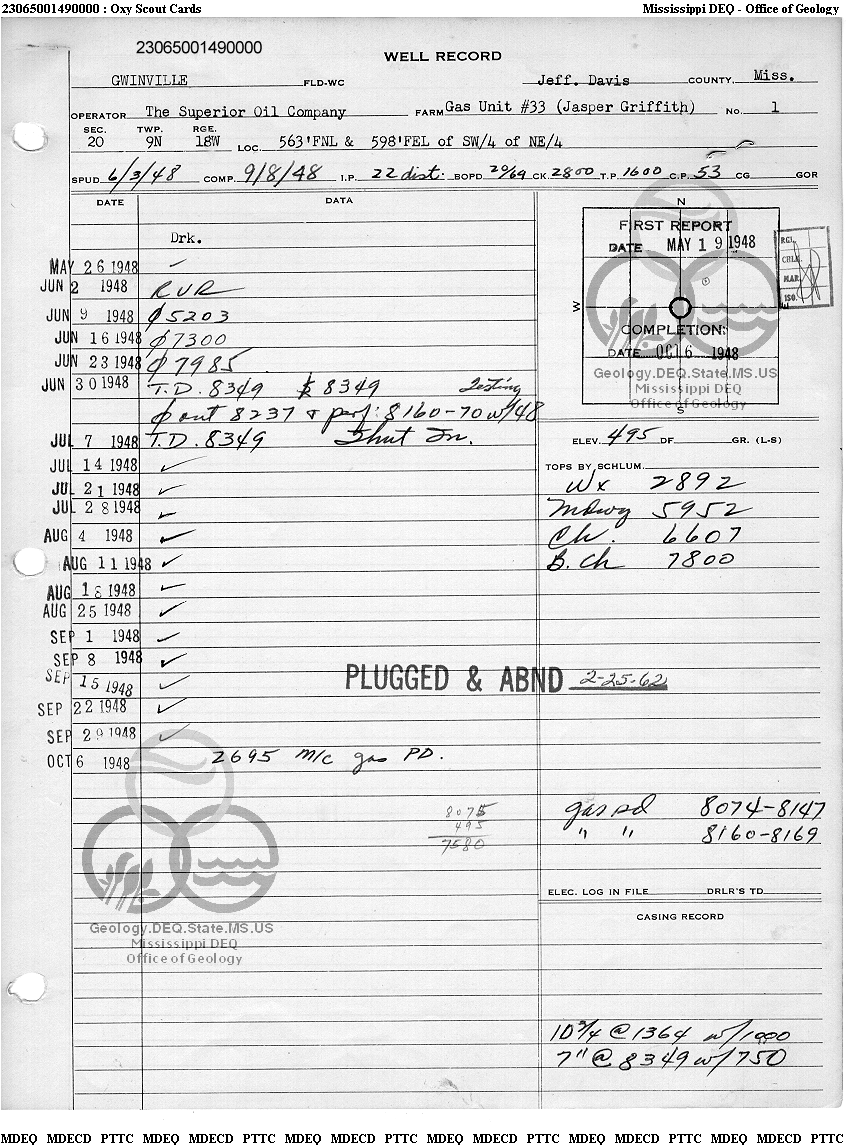 23065001490000 : Oxy Scout Cards Mississippi DEQ - Office of Geology
23065001490000
WELL RECORD
GWINVILLE FLD-WC Jeff. Davis COUNTY, Miss.
OPERATOR The Superior Oil Company FARM Gas Unit #33 (Jasper Griffith) NO. 1
SEC. TWP. RGE.
20 9N 18W LOC. 563'FNL & 598'FEL of SW/4 of NE/4
SPUD 6/3/48 COMP. 9/8/48 I.P. 22 dist. BOPD 20/64 CK. 2800 T.P. 1600 C.P. 53 CG GOR
DATE DATA
N
FIRST REPORT
DATE MAY 19 1948
W
COMPLETION:
DATE OCT 6 1948
Geology.DEQ.State.MS.US
Mississippi DEQ
Office of Geology
S
RGL.
CHLK.
MAR.
ISO.
Drk.
MAY 26 1948 ✓
JUN 2 1948 RUR
JUN 9 1948 ∅ 5203
JUN 16 1948 ∅ 7300
JUN 23 1948 ∅ 7985
JUN 30 1948 T.D. 8349 8349 Testing
∅ out 8237 & perf: 8160-70 w/48
JUL 7 1948 T.D. 8349 Shut In.
JUL 14 1948 ✓
JUL 21 1948 ✓
JUL 28 1948 ✓
AUG 4 1948 ✓
AUG 11 1948 ✓
AUG 18 1948 ✓
AUG 25 1948 ✓
SEP 1 1948 ✓
SEP 8 1948 ✓
SEP 15 1948 ✓
SEP 22 1948 ✓
SEP 29 1948 ✓
OCT 6 1948 2695 M/c gas PD.
PLUGGED & ABND 2-25-62
8075
495
7580
Geology.DEQ.State.MS.US
Mississippi DEQ
Office of Geology
ELEV. 495 DF GR. (L-S)
TOPS BY SCHLUM.
Wx 2892
Mdwy 5952
Ch. 6607
B. Ch 7800
gas sd 8074-8147
" " 8160-8169
ELEC. LOG IN FILE DRLR'S TD
CASING RECORD
10 3/4 @ 1364 w/1000
7" @ 8349 w/750
MDEQ MDECD PTTC MDEQ MDECD PTTC MDEQ MDECD PTTC MDEQ MDECD PTTC MDEQ MDECD PTTC MDEQ MDECD PTTC